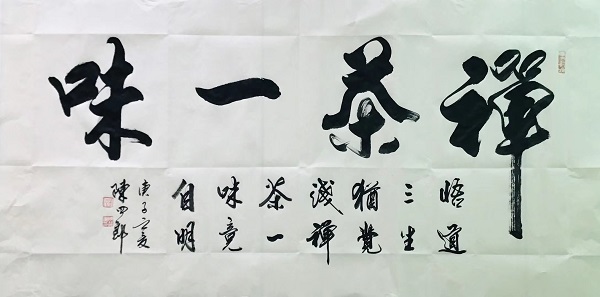 禪茶一味
悟道
三生
猶覺
淺禪
茶一
味竟
自明
庚子夏
陳四郎